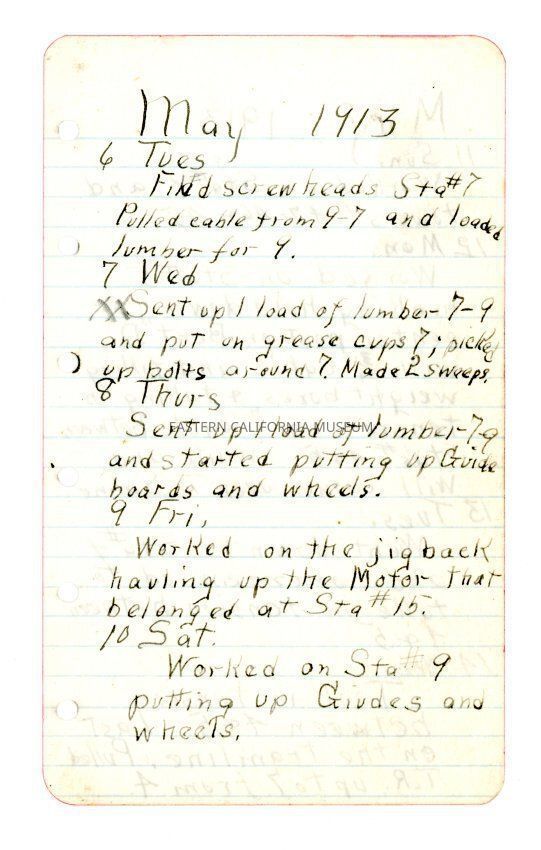 May 1913
6 Tues
Filed screw heads Sta #7
Pulled cable from 9-7 and loaded
lumber for 9.
7 Wed
XX Sent up 1 load of lumber - 7-9
and put on grease cups 7; picked
up bolts around 7. Made 2 sweeps.
8 Thurs
Sent up 1 load of lumber-7-9
EASTERN CALIFORNIA MUSEUM
and started putting up Guide
boards and wheels.
9 Fri,
Worked on the jigback
hauling up the Motor that
belonged at Sta #15.
10 Sat.
Worked on Sta #9
putting up Giudes and
wheels.